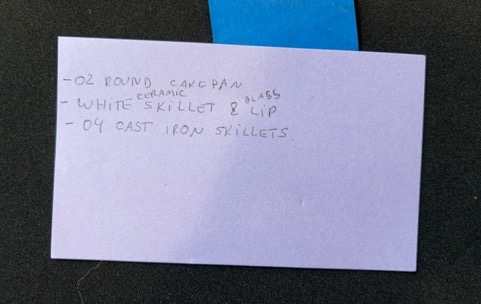 - 02 ROUND CAKEPAN
- WHITE CERAMIC SKILLET & GLASS LID
- 04 CAST IRON SKILLETS